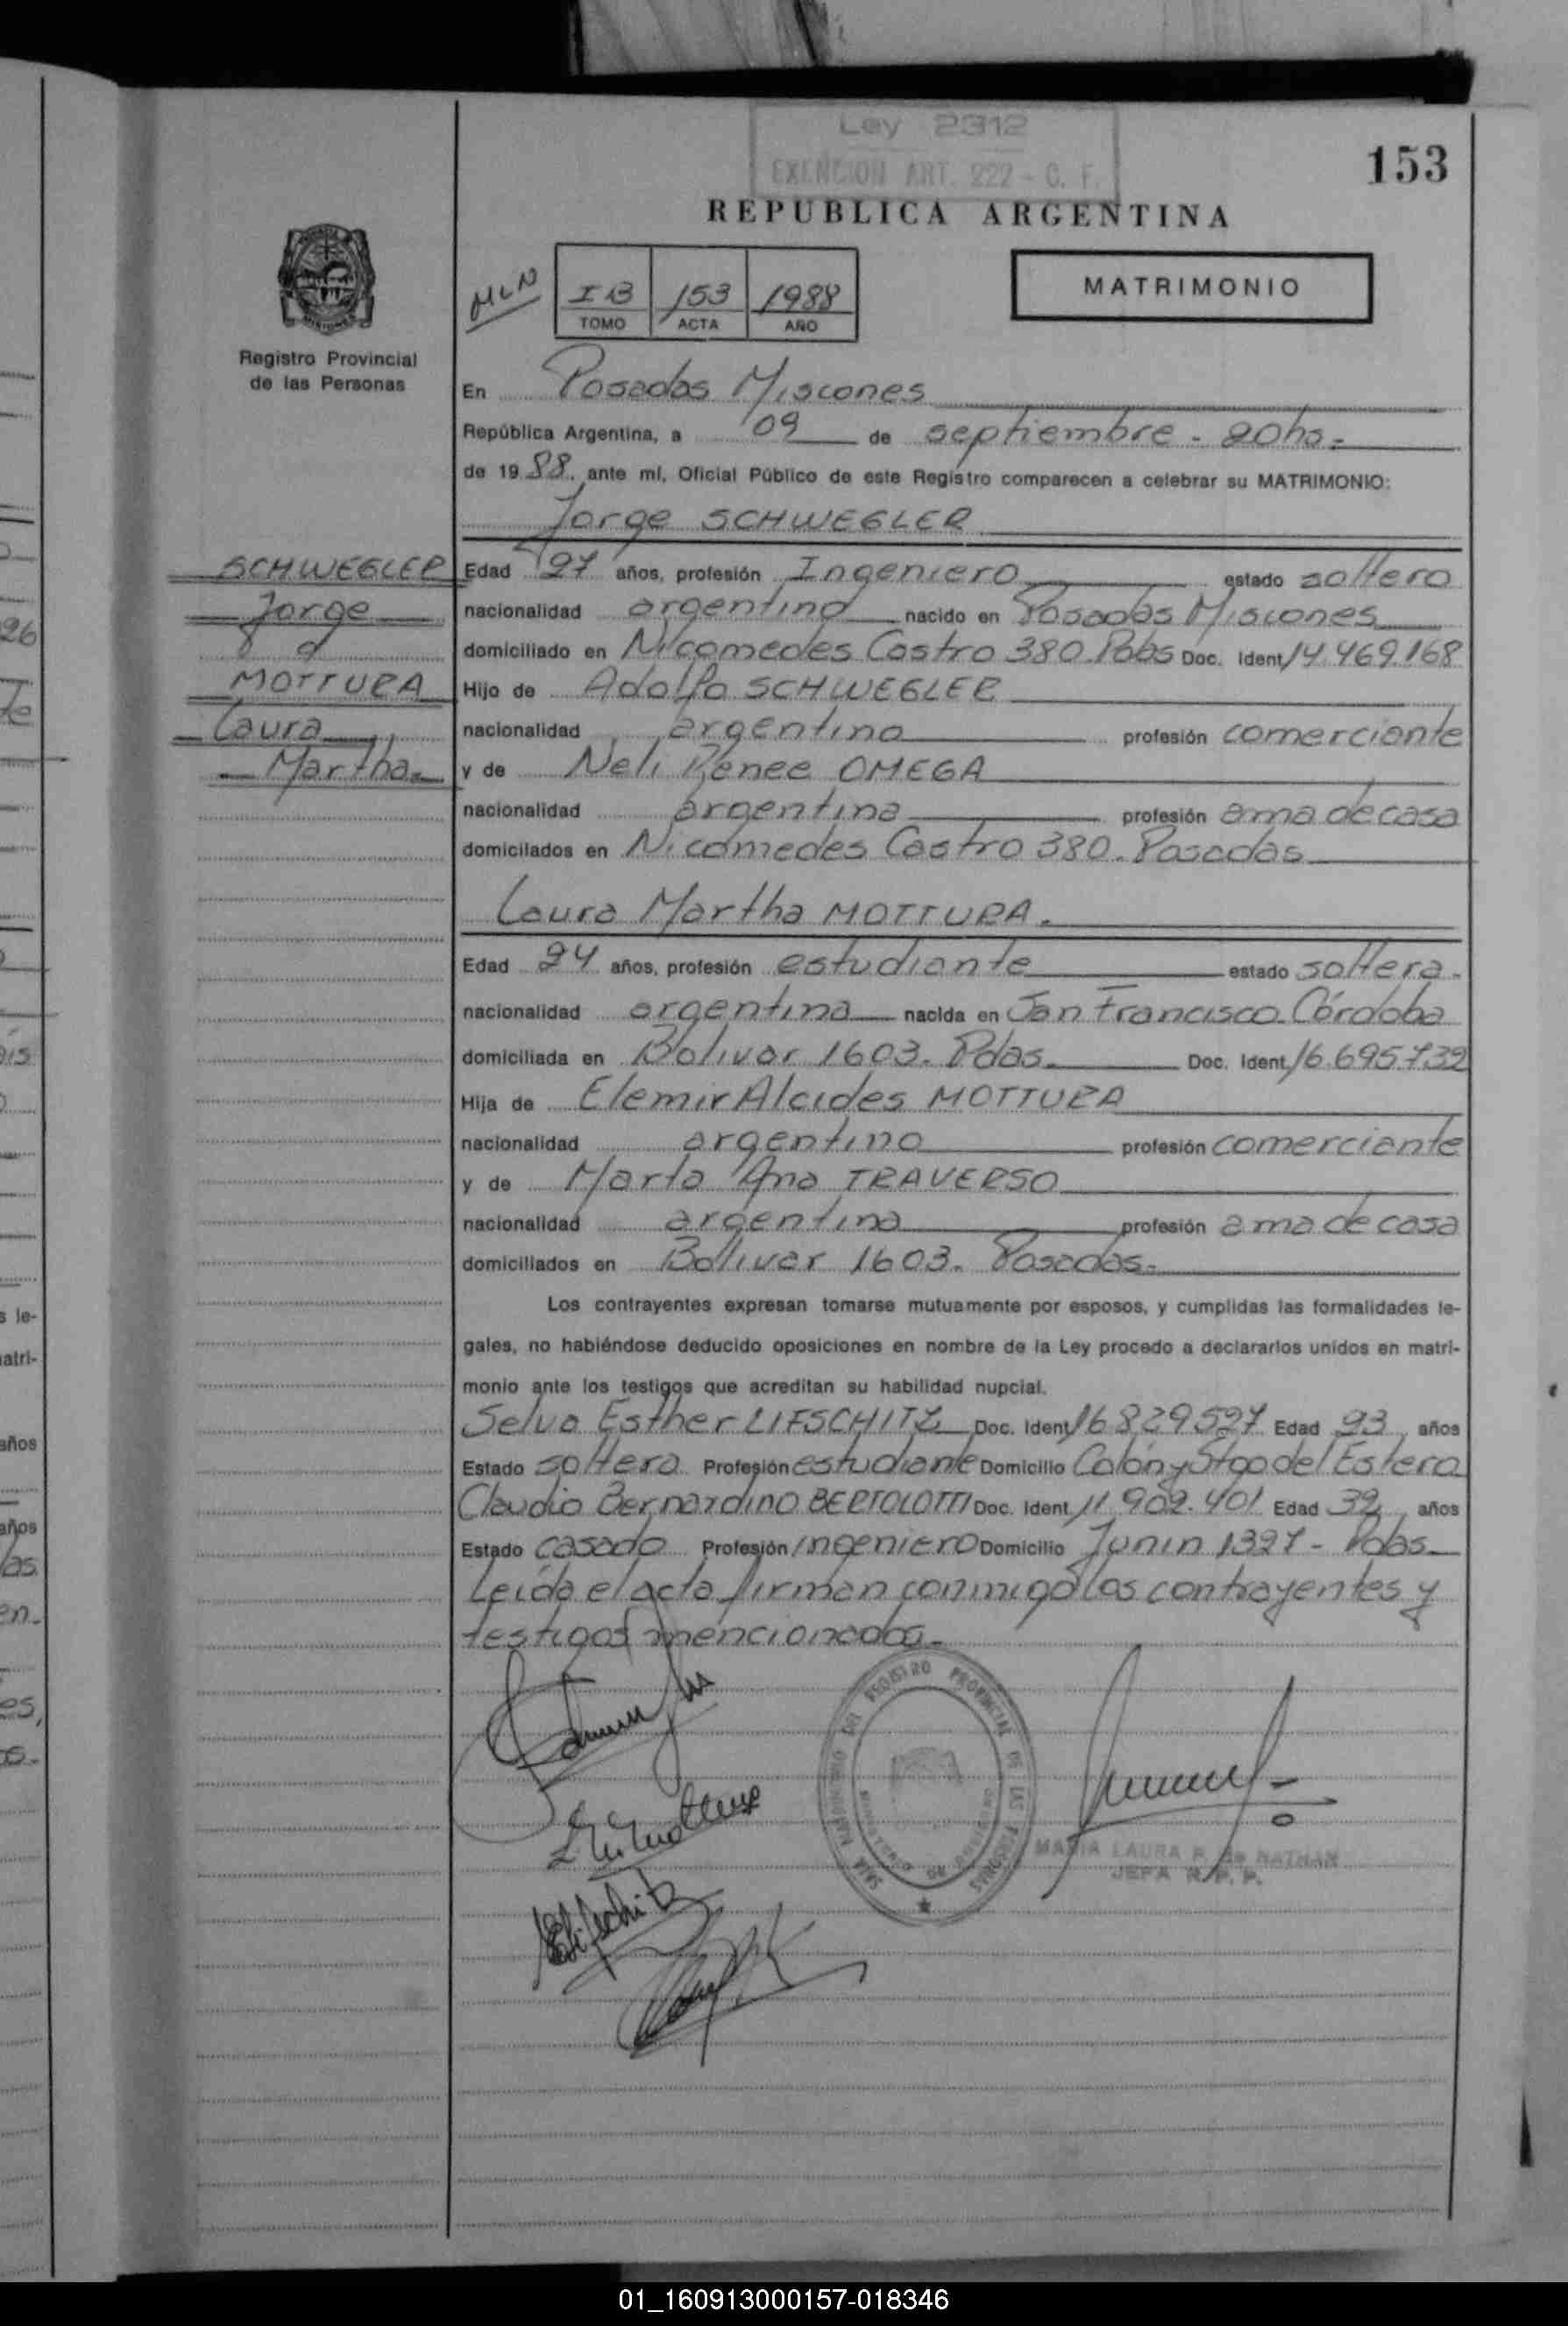 Ley 2312
EXENCION ART. 222 - C. F.
153
REPUBLICA ARGENTINA
MLN
I B 153 1988
TOMO ACTA AÑO
MATRIMONIO
Registro Provincial
de las Personas
En Posadas Misiones
República Argentina, a 09 de septiembre - 20hs.-
de 1988. ante mí, Oficial Público de este Registro comparecen a celebrar su MATRIMONIO:
Jorge SCHWEGLER
SCHWEGLER
Jorge
MOTTURA
Laura
Martha
Edad 27 años, profesión Ingeniero estado soltero
nacionalidad argentino nacido en Posadas Misiones
domiciliado en Nicomedes Castro 380. Pdas Doc. Ident 14.469.168
Hijo de Adolfo SCHWEGLER
nacionalidad argentino profesión comerciante
y de Neli Renee OMEGA
nacionalidad argentina profesión ama de casa
domiciliados en Nicomedes Castro 380. Posadas
Laura Martha MOTTURA.
Edad 24 años, profesión estudiante estado soltera.
nacionalidad argentina nacida en San Francisco. Córdoba
domiciliada en Bolivar 1603. Pdas. Doc. Ident 16.695.732
Hija de Elemir Alcides MOTTURA
nacionalidad argentino profesión comerciante
y de Marta Ana TRAVERSO
nacionalidad argentina profesión ama de casa
domiciliados en Bolivar 1603. Posadas.
Los contrayentes expresan tomarse mutuamente por esposos, y cumplidas las formalidades le-
gales, no habiéndose deducido oposiciones en nombre de la Ley procedo a declararlos unidos en matri-
monio ante los testigos que acreditan su habilidad nupcial.
Selva Esther LIFSCHITZ Doc. Ident 16829527 Edad 23 años
Estado soltera Profesión estudiante Domicilio Colón y Stgo del Estero
Claudio Bernardino BERTOLOTTI Doc. Ident 11.902.401 Edad 32 años
Estado casado Profesión ingeniero Domicilio Junin 1327 - Pdas.
Leída el acta firman conmigo los contrayentes y
testigos mencionados.
REGISTRO PROVINCIAL DE LAS PERSONAS
MARIA LAURA P. de NATHAN
JEFA R. P. P.
01_160913000157-018346